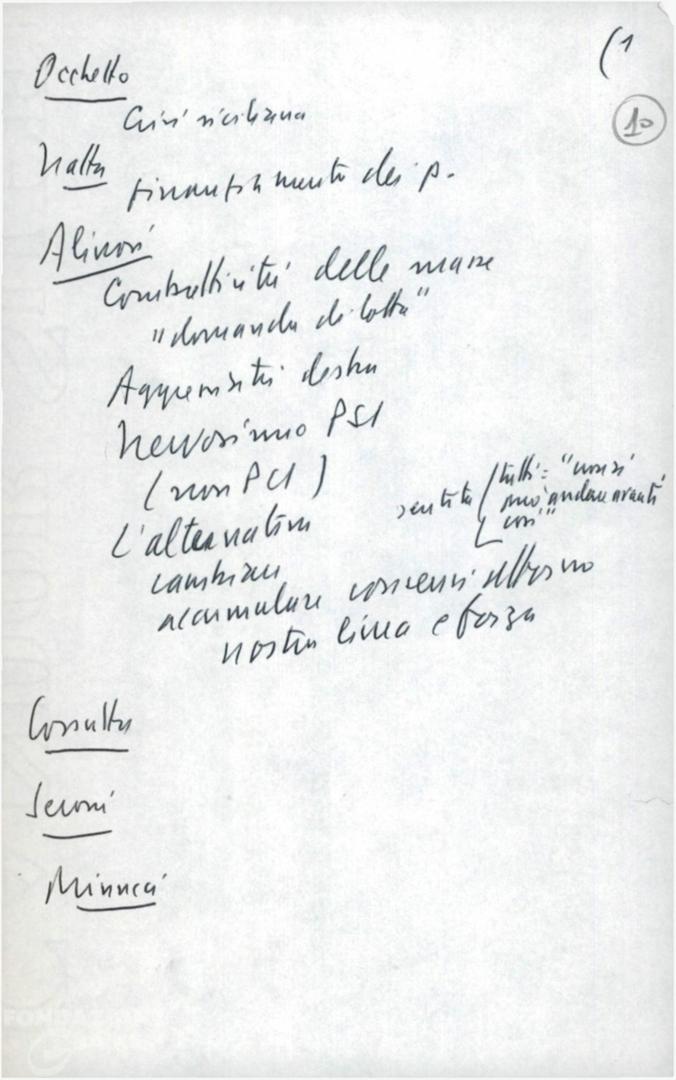 (1
10
Occhetto
Crisi siciliana
Natta
finanziamento dei p.
Alinovi
Combattività delle masse
"domanda di lotta"
Aggressività destra
Nervosismo PSI
(non PCI)
L'alternativa
sentita
tutti: "non si
può andare avanti
così"
cambiare
accumulare consensi attorno
nostra linea e forza
Cossutta
Seroni
Minucci
FONDAZIONE